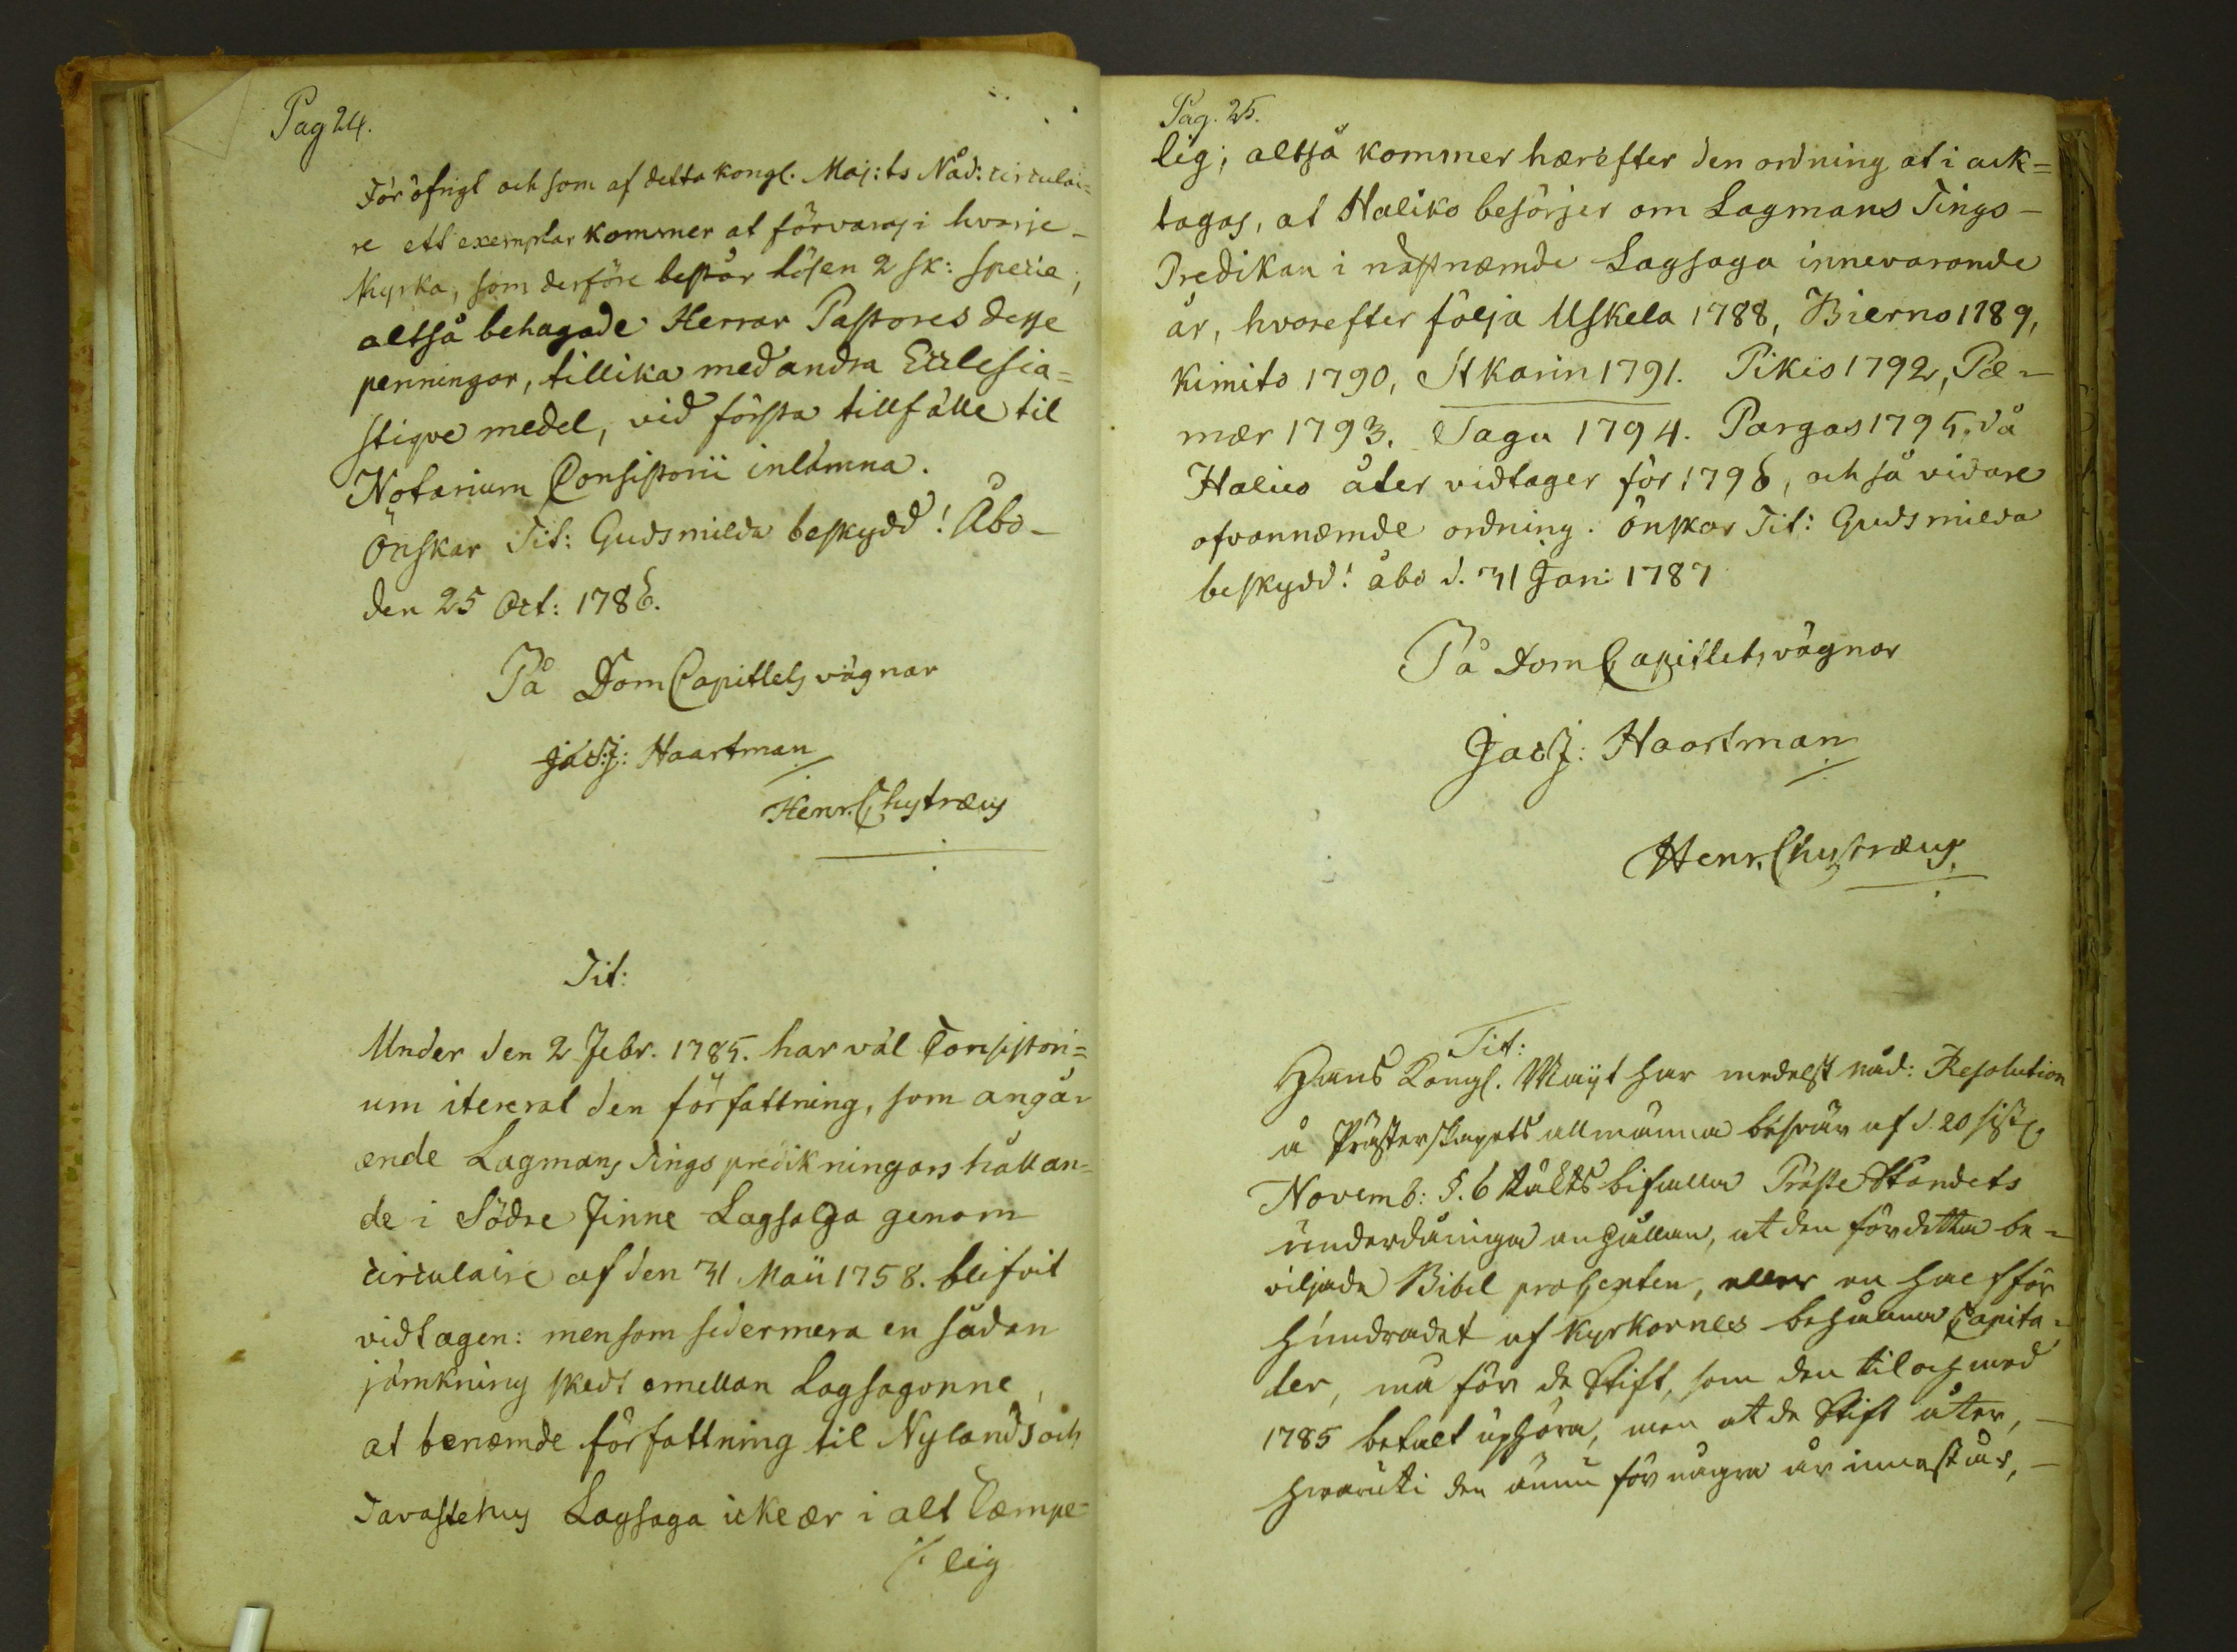 Pag 24.
För öfrigt och som af detta kongl. Maj:ts Nåd: circulai=
re ett exemplar kommer at förvaras i hvarje-
Kyrka, som derföre består lösen 2 sk: specie;
altså behagade Herrar Pastores desse
penningar, tillika med andra Ecclesia=
stiqve medel, vid första tillfälle til
Notarium Consistorii inlämna.
Önskar Tit: Guds milda beskydd! Åbo-
den 25 Oct: 1786.
På DomCapitlets vägnar
Jac:J: Haartman
Henr. Chytræus
Tit:
Under den 2 Febr. 1785. har väl Consistori=
um itererat den författning, som angå-
ende Lagmans Tings predikningars hållan=
de i Södre Finne Lagsaga genom
circulaire af den 31 Maii 1758. blifvit
vidtagen: men som sidermera en sådan
jämkning skedt emellan Lagsagorne,
at benæmde författning til Nylands och
Tavastehus Lagsaga icke ær i alt læmpe=
/: lig
Pag. 25.
lig; altså kommer hærefter den ordning at i ack=
tagas, at Haliko besörjer om Lagmans Tings-
Predikan i næstnæmde Lagsaga innevarande
år, hvarefter följa Uskela 1788, Bierno 1789,
Kimito 1790, St Karin 1791. Pikis 1792, Pæ-
mær 1793. Sagu 1794. Pargas 1795. då
Halico åter vidtager för 1796, och så vidare
ofvannæmde ordning. Önskar Tit: Guds milda
beskydd! åbo d. 31 Jan: 1787
På DomCapitlets vägnar
Jac J: Haartman
Henr. Chytræus
Tit:
Hans Kongl. Maijt har medelst nåd: Resolution
å Prästerskapets allmänna besvär af d. 20 sistl.
Novemb: §. 6 täckts bifalla PrästeStandets
underdåniga anhållan, at den för detta be=
viljade Bibel procenten, eller en half för
hundradet af Kyrkornes behållna Capita=
ler, må för de Stift, som den til och med
1785 betalt uphöra, men at de Stift åter,-
hvaruti den ännu för några år innestår,-